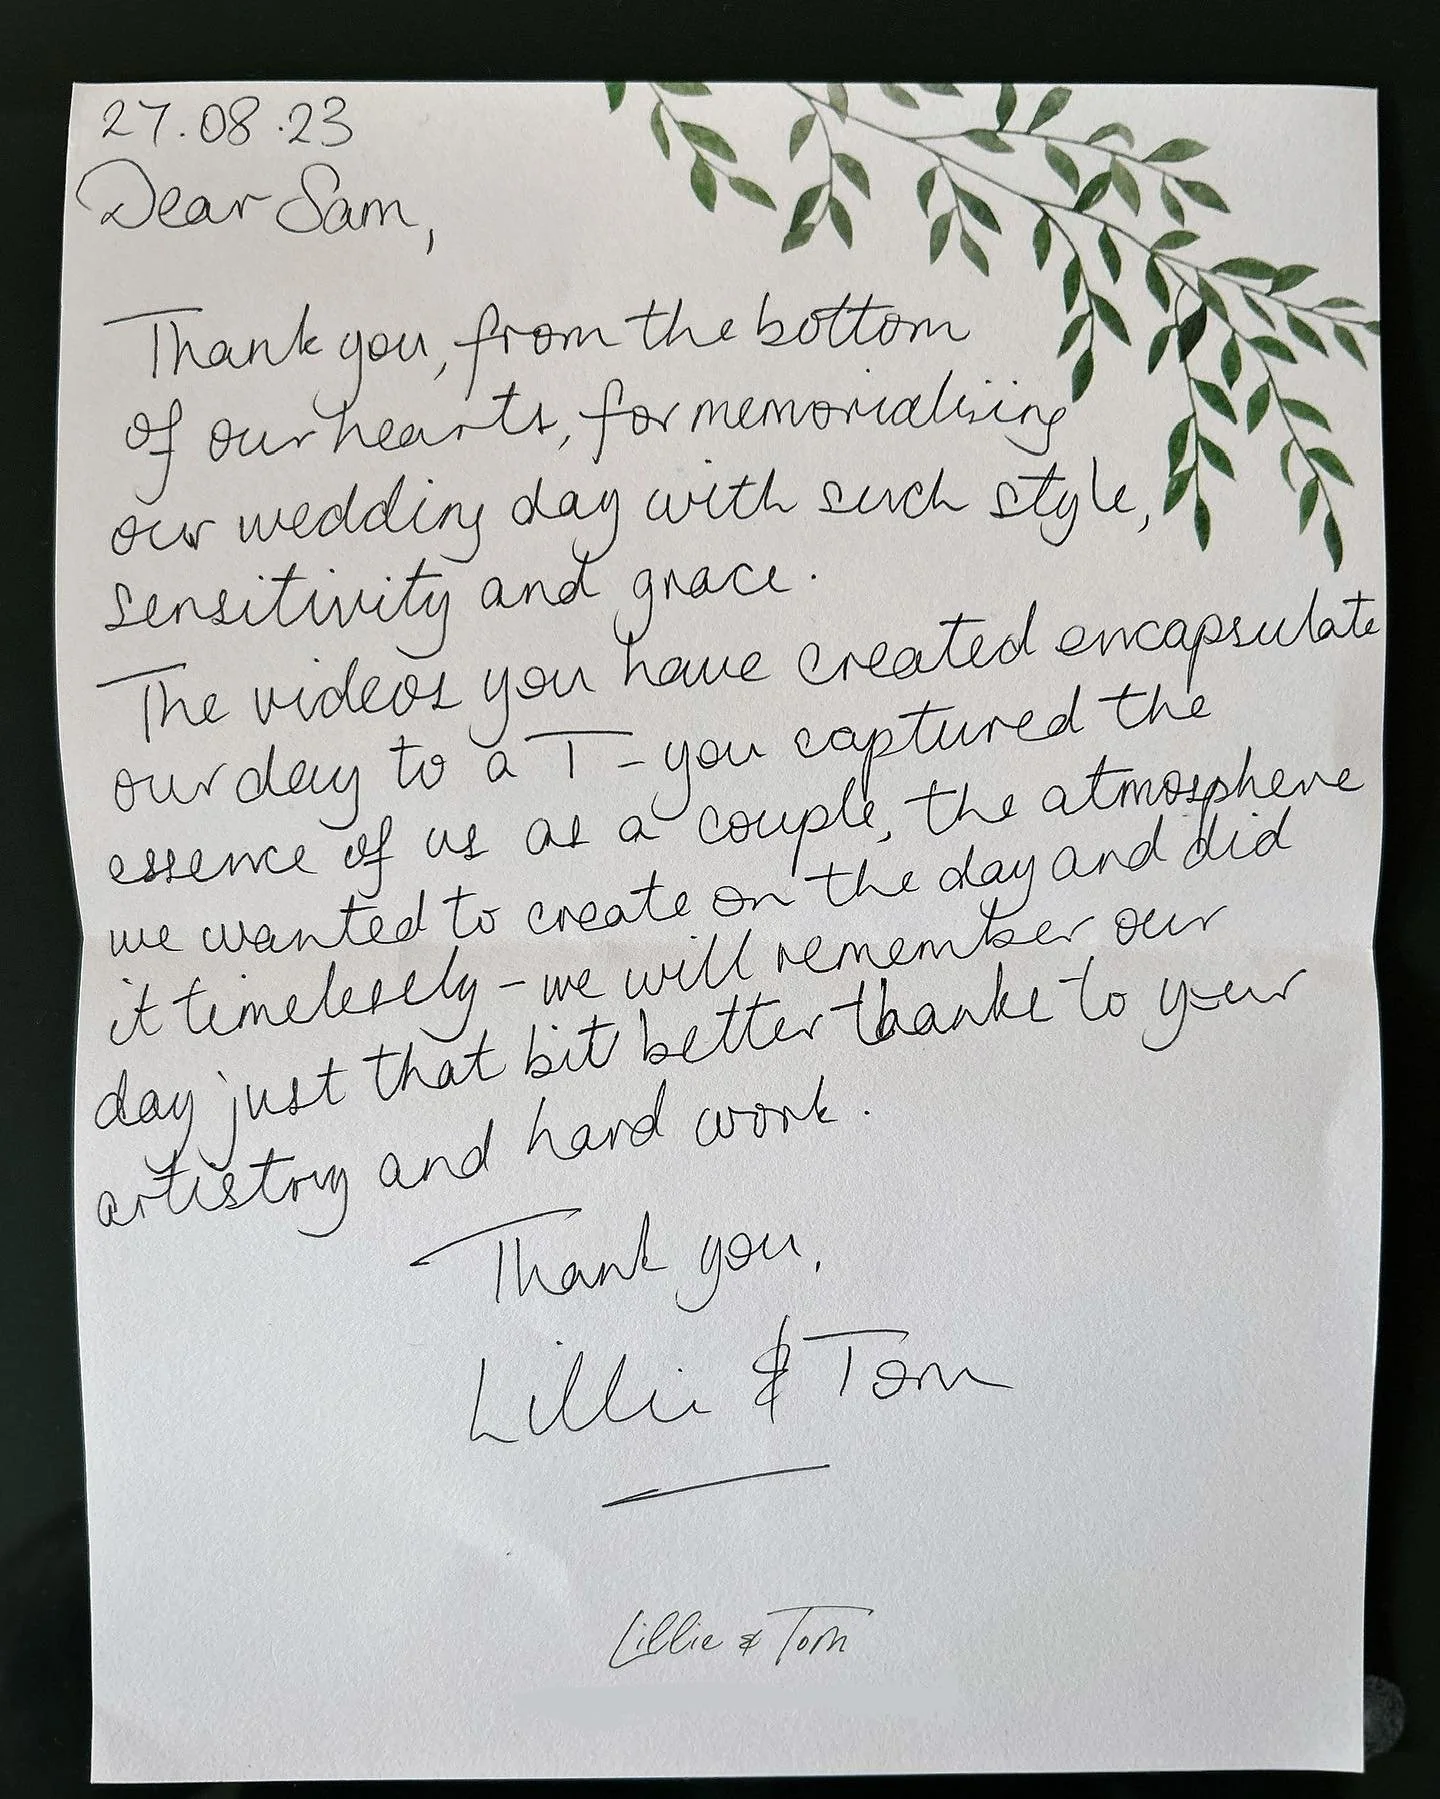 27.08.23
Dear Sam,
Thank you, from the bottom
of our hearts, for memorialising
our wedding day with such style,
sensitivity and grace.
The videos you have created encapsulate
our day to a T - you captured the
essence of us as a couple, the atmosphere
we wanted to create on the day and did
it timelessly - we will remember our
day just that bit better thanks to your
artistry and hard work.
Thank you,
Lillie & Tom
Lillie & Tom